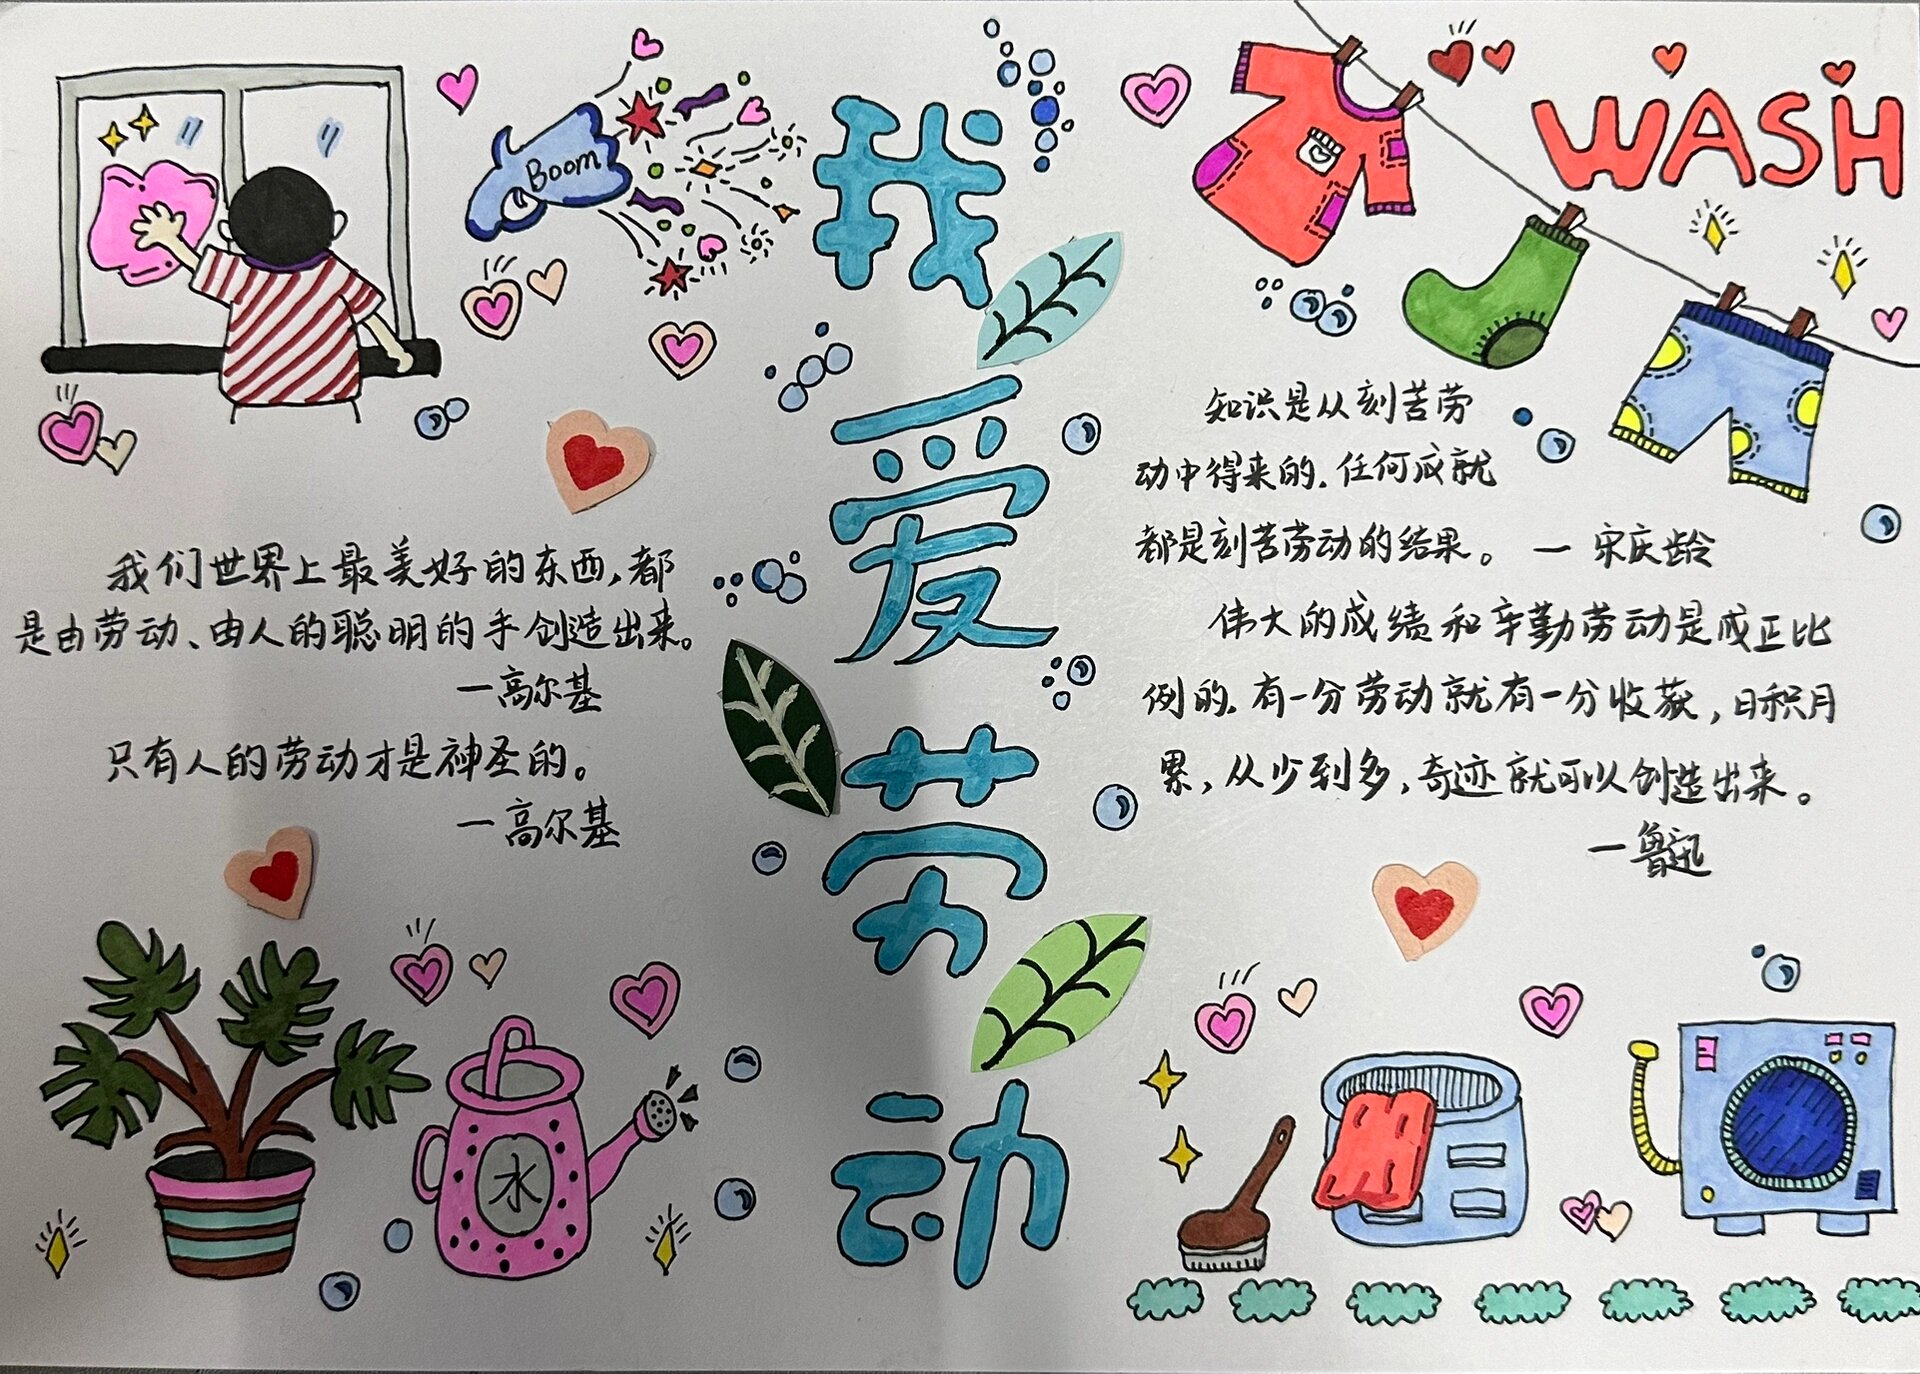 Boom
我爱劳动
WASH
我们世界上最美好的东西,都
是由劳动、由人的聪明的手创造出来。
—高尔基
只有人的劳动才是神圣的。
—高尔基
知识是从刻苦劳
动中得来的.任何成就
都是刻苦劳动的结果。 — 宋庆龄
伟大的成绩和辛勤劳动是成正比
例的.有一分劳动就有一分收获,日积月
累,从少到多,奇迹就可以创造出来。
—鲁迅
水